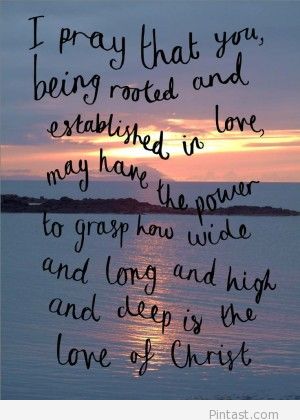 I pray that you,
being rooted and
established in love,
may have the power
to grasp how wide
and long and high
and deep is the
love of Christ
Pintast.com